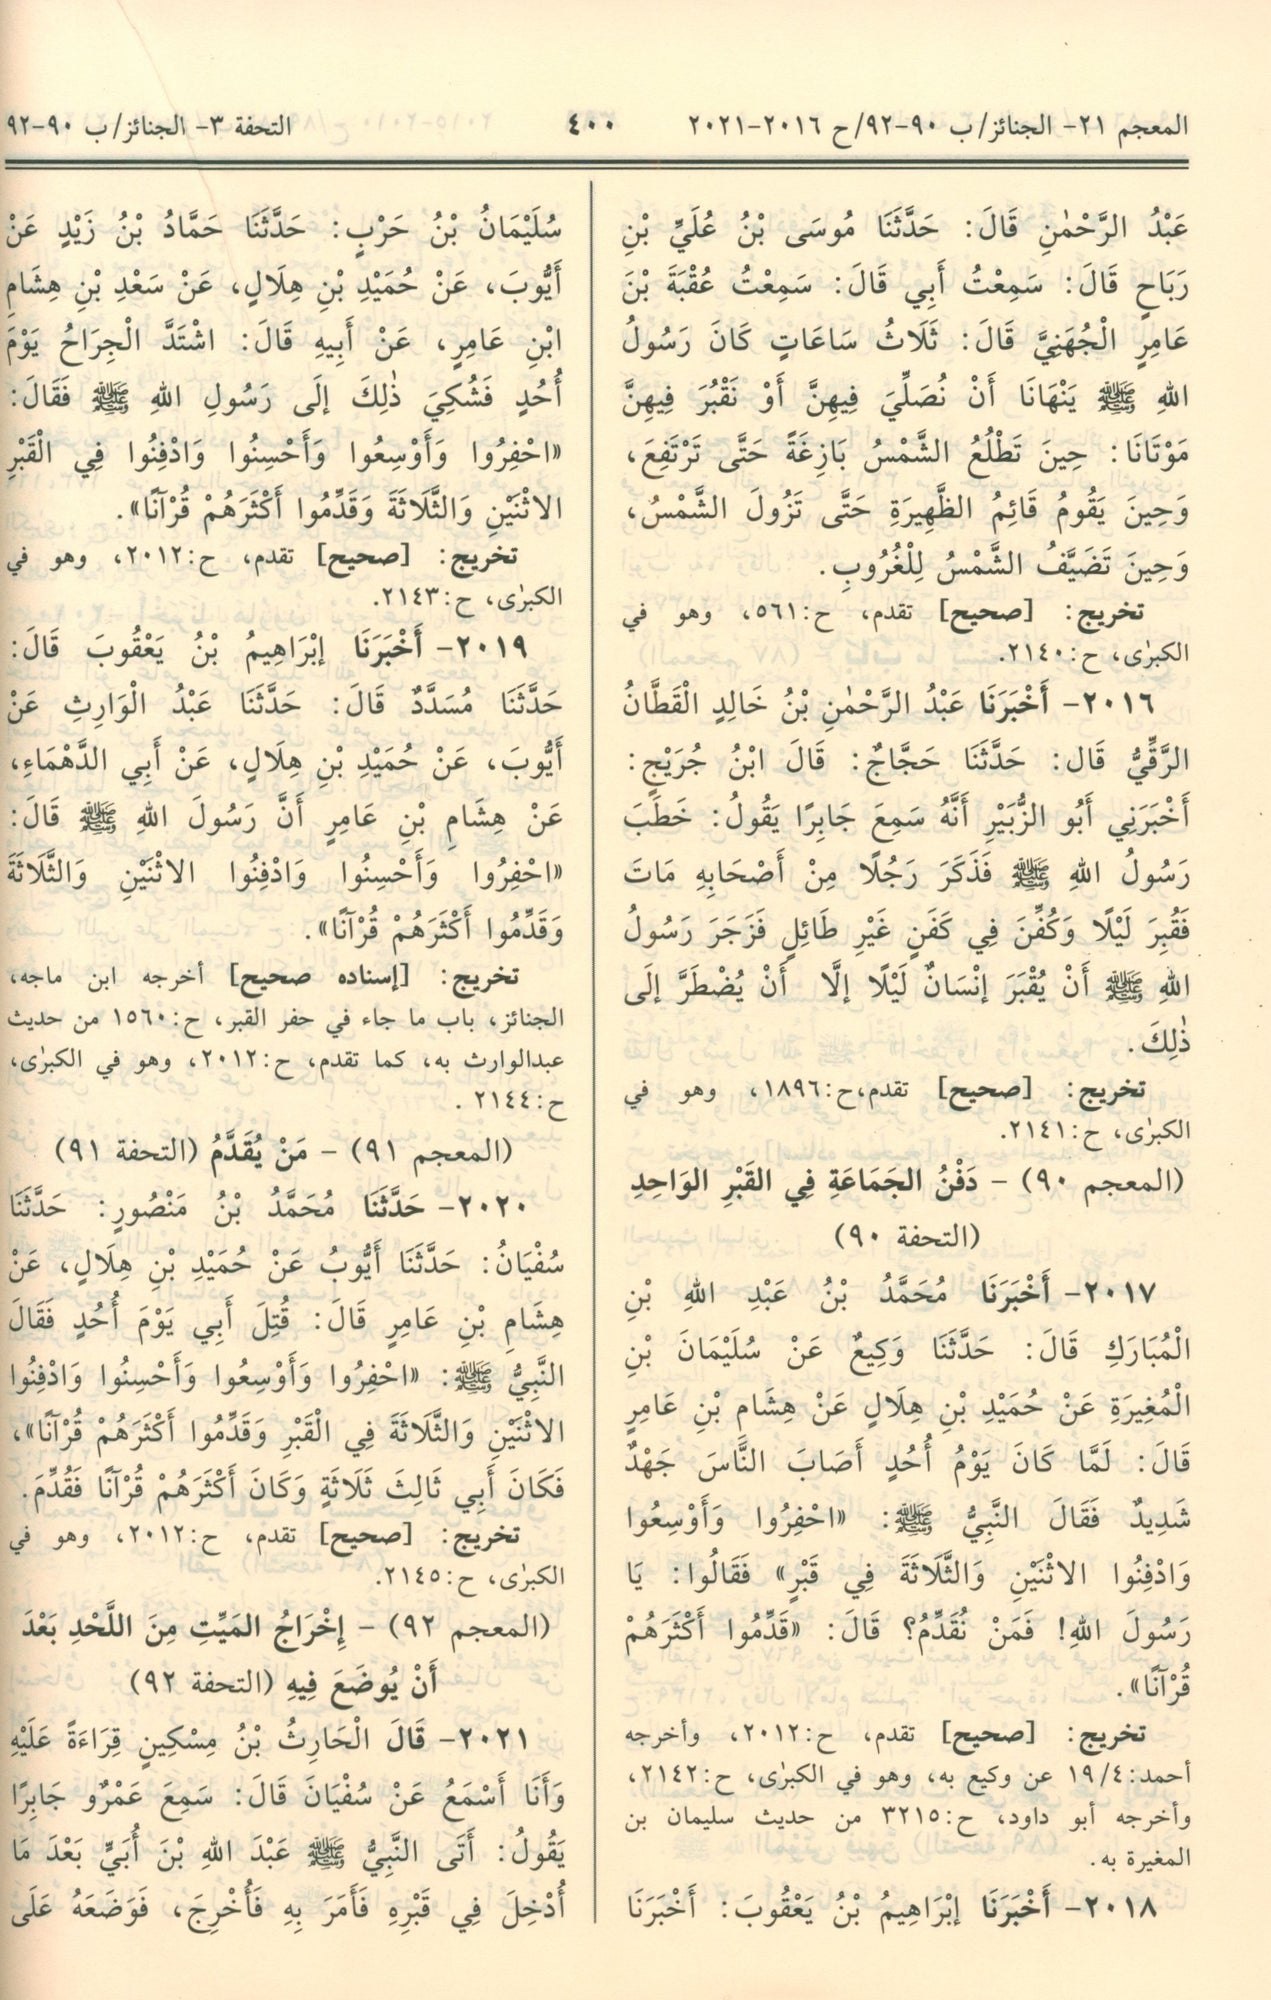 المعجم ٢١- الجنائز/ ب ٩٠-٩٢/ ح ٢٠١٦-٢٠٢١
٤٠٠
التحفة ٣- الجنائز/ ب ٩٠-٩٢
عَبْدُ الرَّحْمٰنِ قَالَ: حَدَّثَنَا مُوسَى بْنُ عُلَيِّ بْنِ
رَبَاحٍ قَالَ: سَمِعْتُ أَبِي قَالَ: سَمِعْتُ عُقْبَةَ بْنَ
عَامِرٍ الْجُهَنِيَّ قَالَ: ثَلَاثُ سَاعَاتٍ كَانَ رَسُولُ
اللهِ ﷺ يَنْهَانَا أَنْ نُصَلِّيَ فِيهِنَّ أَوْ نَقْبُرَ فِيهِنَّ
مَوْتَانَا: حِينَ تَطْلُعُ الشَّمْسُ بَازِغَةً حَتَّى تَرْتَفِعَ،
وَحِينَ يَقُومُ قَائِمُ الظَّهِيرَةِ حَتَّى تَزُولَ الشَّمْسُ،
وَحِينَ تَضَيَّفُ الشَّمْسُ لِلْغُرُوبِ.
تخريج: [صحيح] تقدم، ح:٥٦١، وهو في
الكبرٰى، ح:٢١٤٠.
٢٠١٦- أَخْبَرَنَا عَبْدُ الرَّحْمٰنِ بْنُ خَالِدٍ الْقَطَّانُ
الرَّقِّيُّ قَال: حَدَّثَنَا حَجَّاجٌ: قَالَ ابْنُ جُرَيْجٍ:
أَخْبَرَنِي أَبُو الزُّبَيْرِ أَنَّهُ سَمِعَ جَابِرًا يَقُولُ: خَطَبَ
رَسُولُ اللهِ ﷺ فَذَكَرَ رَجُلًا مِنْ أَصْحَابِهِ مَاتَ
فَقُبِرَ لَيْلًا وَكُفِّنَ فِي كَفَنٍ غَيْرِ طَائِلٍ فَزَجَرَ رَسُولُ
اللهِ ﷺ أَنْ يُقْبَرَ إِنْسَانٌ لَيْلًا إِلَّا أَنْ يُضْطَرَّ إِلَى
ذٰلِكَ.
تخريج: [صحيح] تقدم،ح:١٨٩٦، وهو في
الكبرٰى، ح:٢١٤١.
(المعجم ٩٠) - دَفْنُ الجَمَاعَةِ فِي القَبْرِ الوَاحِدِ
(التحفة ٩٠)
٢٠١٧- أَخْبَرَنَا مُحَمَّدُ بْنُ عَبْدِ اللهِ بْنِ
الْمُبَارَكِ قَالَ: حَدَّثَنَا وَكِيعٌ عَنْ سُلَيْمَانَ بْنِ
الْمُغِيرَةِ عَنْ حُمَيْدِ بْنِ هِلَالٍ عَنْ هِشَامِ بْنِ عَامِرٍ
قَالَ: لَمَّا كَانَ يَوْمُ أُحُدٍ أَصَابَ النَّاسَ جَهْدٌ
شَدِيدٌ فَقَالَ النَّبِيُّ ﷺ: «احْفِرُوا وَأَوْسِعُوا
وَادْفِنُوا الاثْنَيْنِ وَالثَّلَاثَةَ فِي قَبْرٍ» فَقَالُوا: يَا
رَسُولَ اللهِ! فَمَنْ نُقَدِّمُ؟ قَالَ: «قَدِّمُوا أَكْثَرَهُمْ
قُرْآنًا».
تخريج: [صحيح] تقدم، ح:٢٠١٢، وأخرجه
أحمد:٤/ ١٩ عن وكيع به، وهو في الكبرٰى، ح:٢١٤٢،
وأخرجه أبو داود، ح:٣٢١٥ من حديث سليمان بن
المغيرة به.
٢٠١٨- أَخْبَرَنَا إِبْرَاهِيمُ بْنُ يَعْقُوبَ: أَخْبَرَنَا
سُلَيْمَانُ بْنُ حَرْبٍ: حَدَّثَنَا حَمَّادُ بْنُ زَيْدٍ عَنْ
أَيُّوبَ، عَنْ حُمَيْدِ بْنِ هِلَالٍ، عَنْ سَعْدِ بْنِ هِشَامِ
ابْنِ عَامِرٍ، عَنْ أَبِيهِ قَالَ: اشْتَدَّ الْجِرَاحُ يَوْمَ
أُحُدٍ فَشُكِيَ ذٰلِكَ إِلَى رَسُولِ اللهِ ﷺ فَقَالَ:
«احْفِرُوا وَأَوْسِعُوا وَأَحْسِنُوا وَادْفِنُوا فِي الْقَبْرِ
الاثْنَيْنِ وَالثَّلَاثَةَ وَقَدِّمُوا أَكْثَرَهُمْ قُرْآنًا».
تخريج: [صحيح] تقدم، ح:٢٠١٢، وهو في
الكبرٰى، ح:٢١٤٣.
٢٠١٩- أَخْبَرَنَا إِبْرَاهِيمُ بْنُ يَعْقُوبَ قَالَ:
حَدَّثَنَا مُسَدَّدٌ قَالَ: حَدَّثَنَا عَبْدُ الْوَارِثِ عَنْ
أَيُّوبَ، عَنْ حُمَيْدِ بْنِ هِلَالٍ، عَنْ أَبِي الدَّهْمَاءِ،
عَنْ هِشَامِ بْنِ عَامِرٍ أَنَّ رَسُولَ اللهِ ﷺ قَالَ:
«احْفِرُوا وَأَحْسِنُوا وَادْفِنُوا الاثْنَيْنِ وَالثَّلَاثَةَ
وَقَدِّمُوا أَكْثَرَهُمْ قُرْآنًا».
تخريج: [إسناده صحيح] أخرجه ابن ماجه،
الجنائز، باب ما جاء في حفر القبر، ح:١٥٦٠ من حديث
عبدالوارث به، كما تقدم، ح:٢٠١٢، وهو في الكبرٰى،
ح:٢١٤٤ .
(المعجم ٩١) - مَنْ يُقَدَّمُ (التحفة ٩١)
٢٠٢٠- حَدَّثَنَا مُحَمَّدُ بْنُ مَنْصُورٍ: حَدَّثَنَا
سُفْيَانُ: حَدَّثَنَا أَيُّوبُ عَنْ حُمَيْدِ بْنِ هِلَالٍ، عَنْ
هِشَامِ بْنِ عَامِرٍ قَالَ: قُتِلَ أَبِي يَوْمَ أُحُدٍ فَقَالَ
النَّبِيُّ ﷺ: «احْفِرُوا وَأَوْسِعُوا وَأَحْسِنُوا وَادْفِنُوا
الاثْنَيْنِ وَالثَّلَاثَةَ فِي الْقَبْرِ وَقَدِّمُوا أَكْثَرَهُمْ قُرْآنًا»،
فَكَانَ أَبِي ثَالِثَ ثَلَاثَةٍ وَكَانَ أَكْثَرَهُمْ قُرْآنًا فَقُدِّمَ.
تخريج: [صحيح] تقدم، ح:٢٠١٢، وهو في
الكبرٰى، ح:٢١٤٥.
(المعجم ٩٢) - إِخْرَاجُ المَيِّتِ مِنَ اللَّحْدِ بَعْدَ
أَنْ يُوضَعَ فِيهِ (التحفة ٩٢)
٢٠٢١- قَالَ الْحَارِثُ بْنُ مِسْكِينٍ قِرَاءَةً عَلَيْهِ
وَأَنَا أَسْمَعُ عَنْ سُفْيَانَ قَالَ: سَمِعَ عَمْرٌو جَابِرًا
يَقُولُ: أَتَى النَّبِيُّ ﷺ عَبْدَ اللهِ بْنَ أُبَيٍّ بَعْدَ مَا
أُدْخِلَ فِي قَبْرِهِ فَأَمَرَ بِهِ فَأُخْرِجَ، فَوَضَعَهُ عَلَى